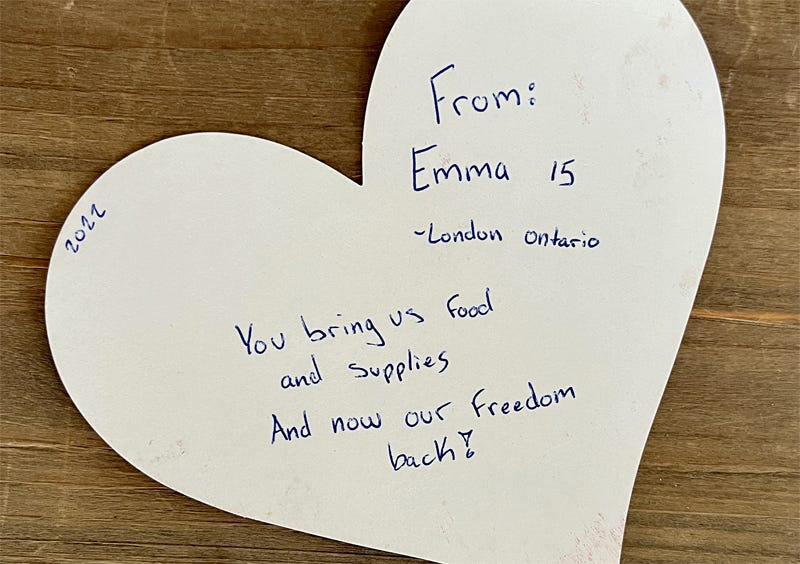 From:
Emma 15
~London Ontario
2022
You bring us food
and supplies
And now our freedom
back!